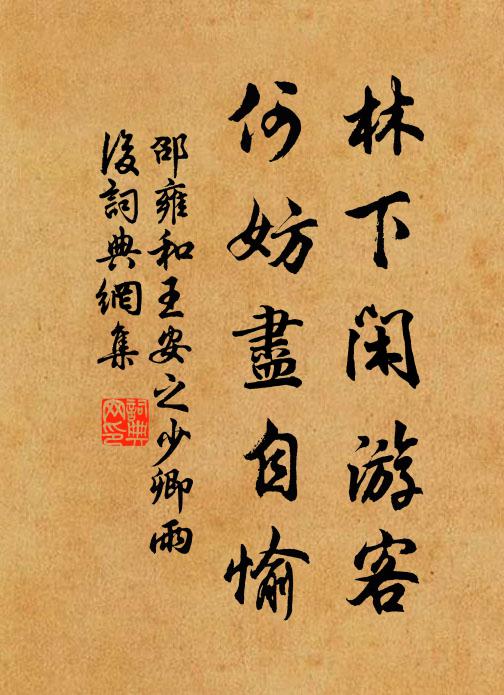 林下閑游客
何妨盡自愉
邵雍和王安之少卿雨
後詞典網集
詞典
网印